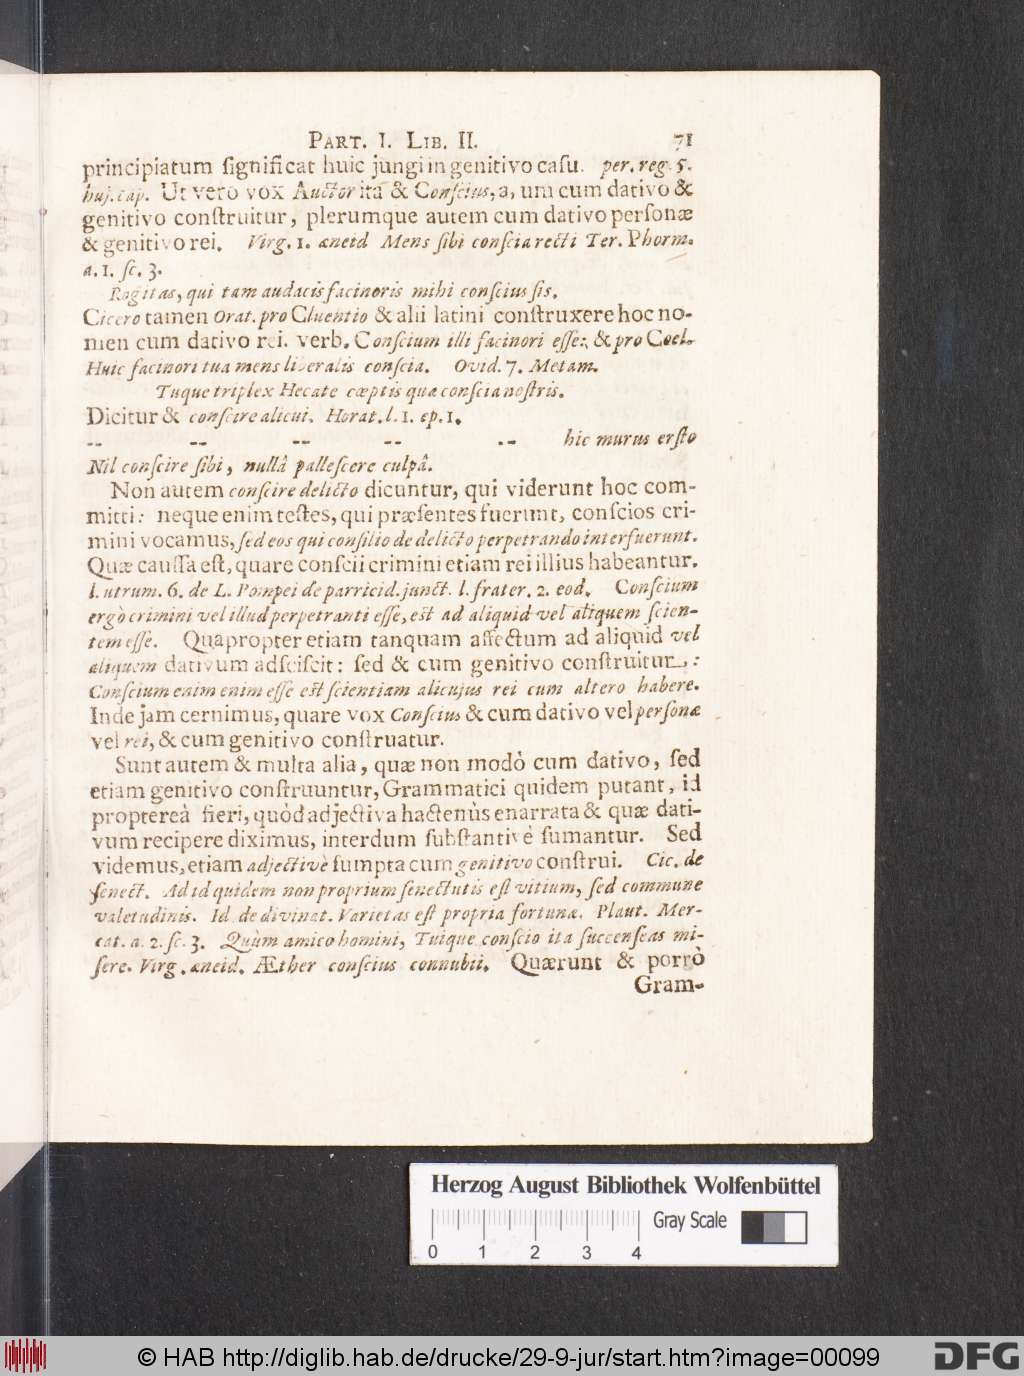 PART. I. LIB. II. 71
principiatum significat huic jungi in genitivo casu. per. reg. 5.
huj. cap. Ut vero vox Auctor ita & Conscius, a, um cum dativo &
genitivo construitur, plerumque autem cum dativo personæ
& genitivo rei. Virg. 1. æneid Mens sibi conscia recti Ter. Phorm.
a. 1. sc. 3.
Rogitas, qui tam audacis facinoris mihi conscius sis.
Cicero tamen Orat. pro Cluentio & alii latini construxere hoc no-
men cum dativo rei. verb. Conscium illi facinori esse:, & pro Coel.
Huic facinori tua mens liberalis conscia. Ovid. 7. Metam.
Tuque triplex Hecate cœptis quæ conscia nostris.
Dicitur & conscire alicui. Horat. l. 1. ep. 1.
-- -- -- -- -- hic murus ersto
Nil conscire sibi, nullâ pallescere culpâ.
Non autem conscire delicto dicuntur, qui viderunt hoc com-
mitti: neque enim testes, qui præsentes fuerunt, conscios cri-
mini vocamus, sed eos qui consilio de delicto perpetrando interfuerunt.
Quæ caussa est, quare conscii crimini etiam rei illius habeantur.
l. utrum. 6. de L. Pompei de parricid. junct. l. frater. 2. eod. Conscium
ergò crimini vel illud perpetranti esse, est ad aliquid vel aliquem scien-
tem esse. Quapropter etiam tanquam affectum ad aliquid vel
aliquem dativum adsciscit: sed & cum genitivo construitur:
Conscium enim enim esse est scientiam alicujus rei cum altero habere.
Inde jam cernimus, quare vox Conscius & cum dativo vel personæ
vel rei, & cum genitivo construatur.
Sunt autem & multa alia, quæ non modò cum dativo, sed
etiam genitivo construuntur, Grammatici quidem putant, id
proptereà fieri, quòd adjectiva hactenùs enarrata & quæ dati-
vum recipere diximus, interdum substantivè sumantur. Sed
videmus, etiam adjectivè sumpta cum genitivo construi. Cic. de
senect. Ad id quidem non proprium senectutis est vitium, sed commune
valetudinis. Id de divinat. Varietas est propria fortunæ. Plaut. Mer-
cat. a. 2. sc. 3. Quùm amico homini, Tuique conscio ita succenseas mi-
sere. Virg. æneid. Æther conscius connubii. Quærunt & porrò
Gram-
Herzog August Bibliothek Wolfenbüttel
Gray Scale
0 1 2 3 4
© HAB http://diglib.hab.de/drucke/29-9-jur/start.htm?image=00099
DFG